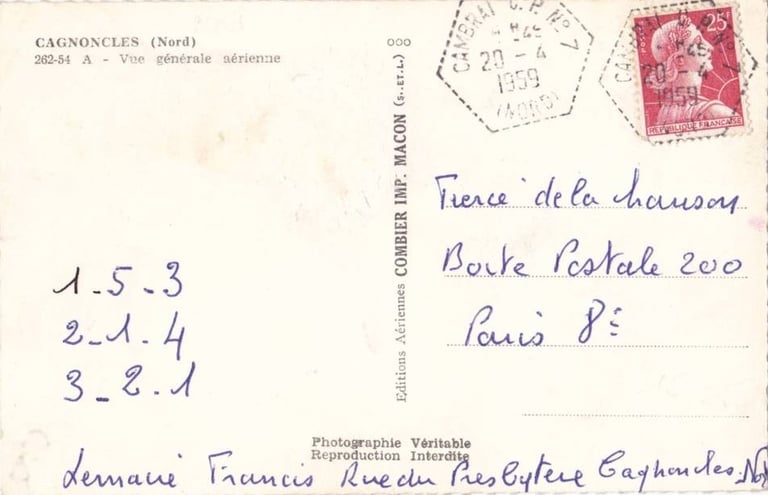 CAGNONCLES (Nord)
262-54 A - Vue générale aérienne
ooo
Editions Aériennes COMBIER IMP. MACON (S.-ET-L.)
CAMBRAI C.P. N° 7
20 - 4
1959
(NORD)
CAMBRAI C.P. N° 7
20 - 4
1959
25F
REPUBLIQUE FRANÇAISE
Tiercé de la chanson
Boite Postale 200
Paris 8e
1 - 5 - 3
2 - 1 - 4
3 - 2 - 1
Photographie Véritable
Reproduction Interdite
Lemaire Francis Rue du Presbytere Cagnoncles. Nord